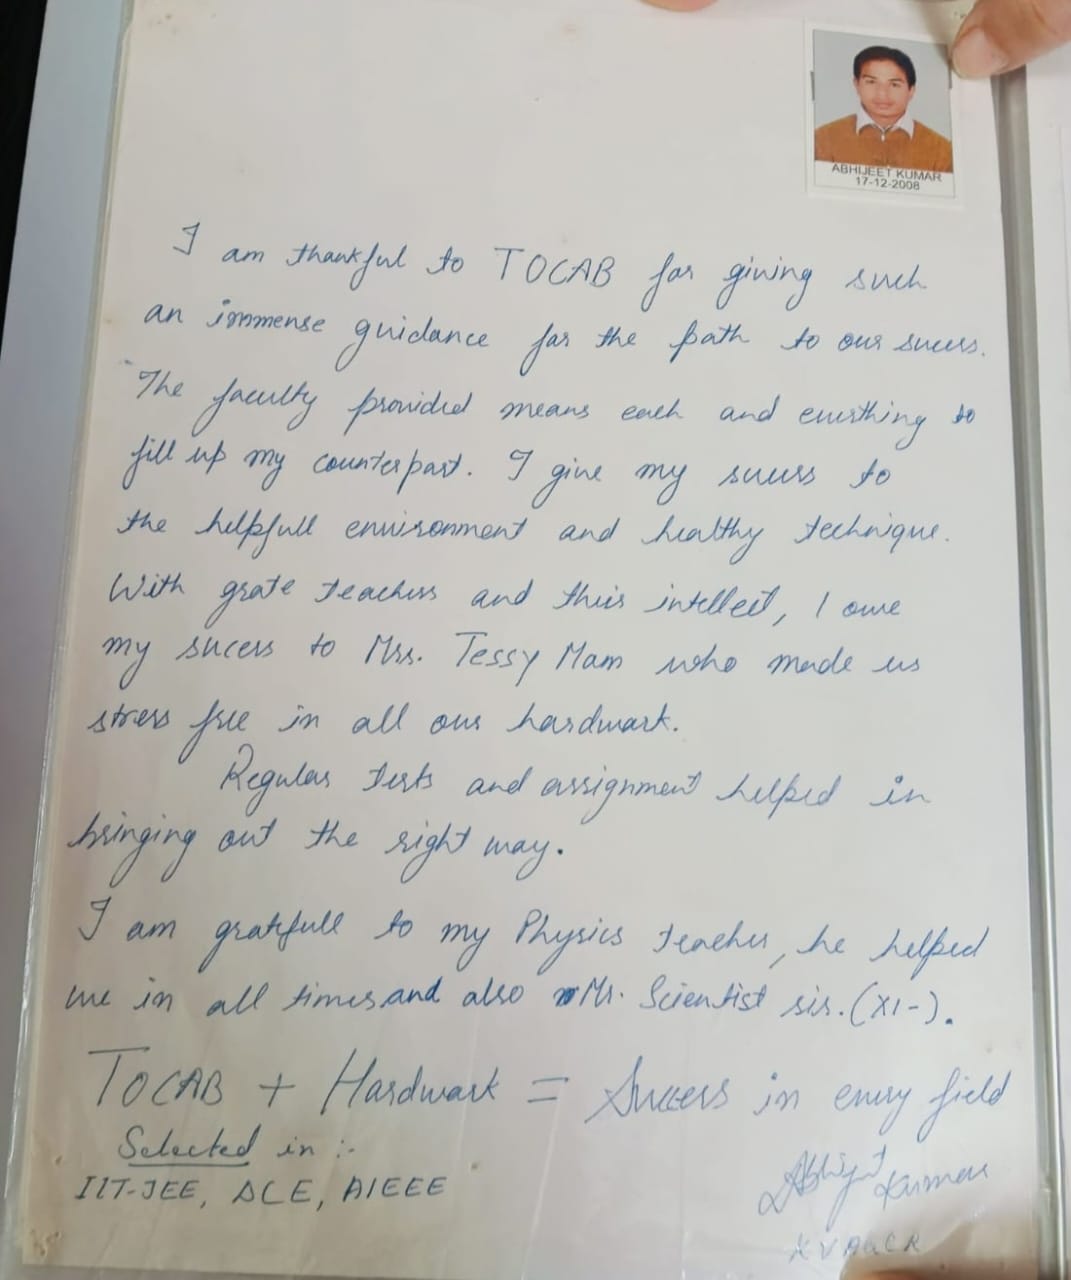 ABHIJEET KUMAR
17-12-2008
I am thankful to TOCAB for giving such
an immense guidance for the path to our sucess.
The faculty provided means each and everthing to
fill up my counterpart. I give my sucess to
the helpfull environment and healthy technique.
With grate teachers and their intellect, I owe
my sucess to Mrs. Tessy Mam who made us
stress free in all our hardwark.
Regular tests and assignment helped in
bringing out the right way.
I am gratefull to my Physics teacher, he helped
me in all times and also Mr. Scientist sir. (XI-).
TOCAB + Hardwark = Success in every field
Selected in :-
IIT-JEE, DCE, AIEEE
Abhijeet Kumar